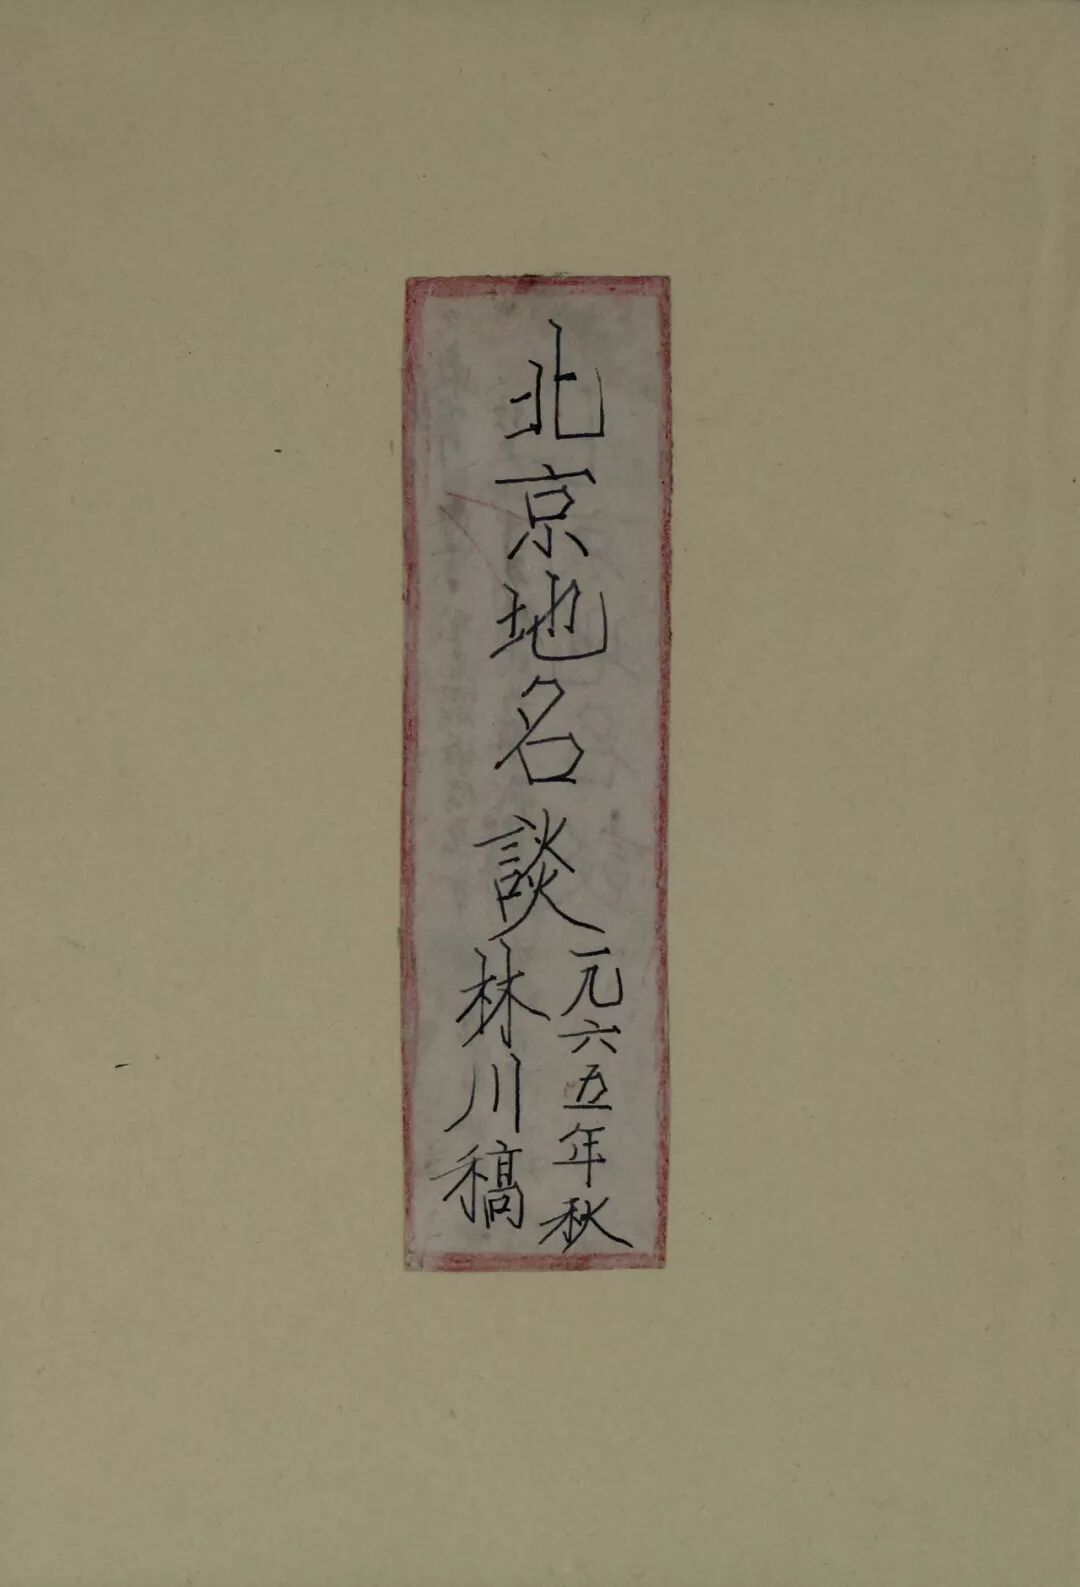 北京地名談
一九六五年秋
林川稿